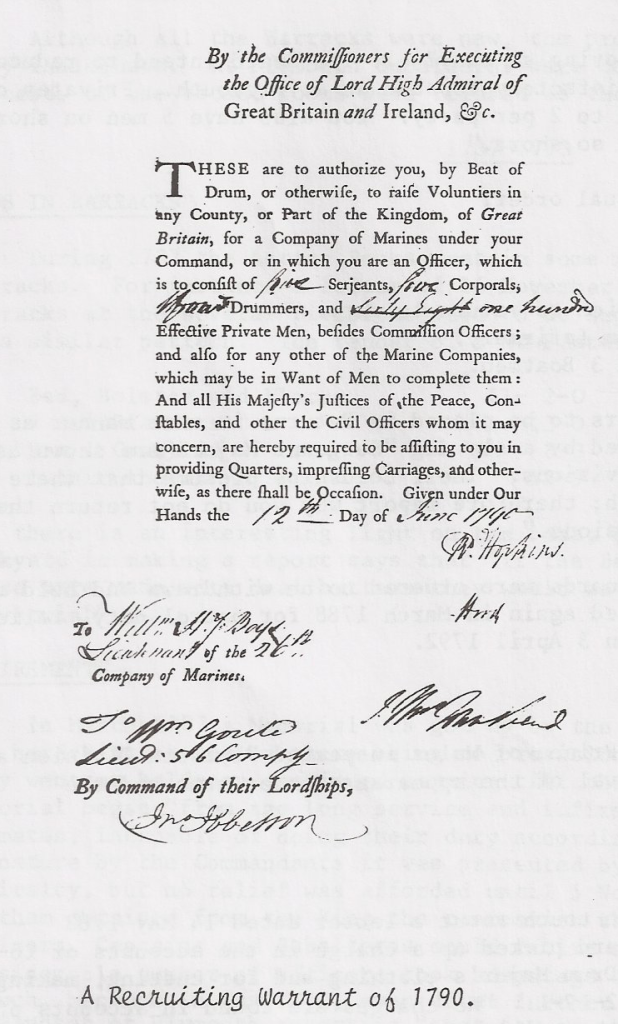 By the Commiſſioners for Executing
the Office of Lord High Admiral of
Great Britain and Ireland, &c.
THESE are to authorize you, by Beat of
Drum, or otherwiſe, to raiſe Voluntiers in
any County, or Part of the Kingdom, of Great
Britain, for a Company of Marines under your
Command, or in which you are an Officer, which
is to conſiſt of five Serjeants, five Corporals,
Drummers, and Sixty Eight one hundred
Effective Private Men, beſides Commiſſion Officers;
and alſo for any other of the Marine Companies,
which may be in Want of Men to complete them:
And all His Majeſty's Juſtices of the Peace, Con-
ſtables, and other the Civil Officers whom it may
concern, are hereby required to be aſſiſting to you in
providing Quarters, impreſſing Carriages, and other-
wiſe, as there ſhall be Occaſion. Given under Our
Hands the 12th Day of June 1790
R. Hopkins.
Hood
To Willm H. Boys
Lieutenant of the 26th
Company of Marines.
To Wm
Lieut: 56 Compy
By Command of their Lordſhips,
Jno Ibbetson
A Recruiting Warrant of 1790.